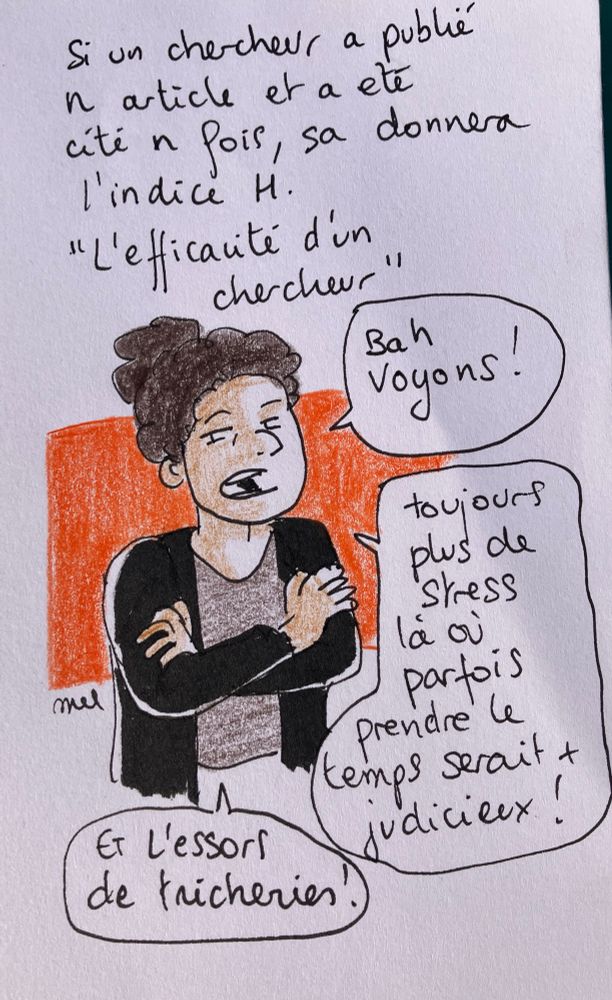 Si un chercheur a publié
n article et a eté
cité n fois, sa donnera
l'indice H.
"L'efficacité d'un
chercheur"
Bah
Voyons !
toujours
plus de
stress
là où
parfois
prendre le
temps serait +
judicieux !
mel
Et L'essors
de tricheries !